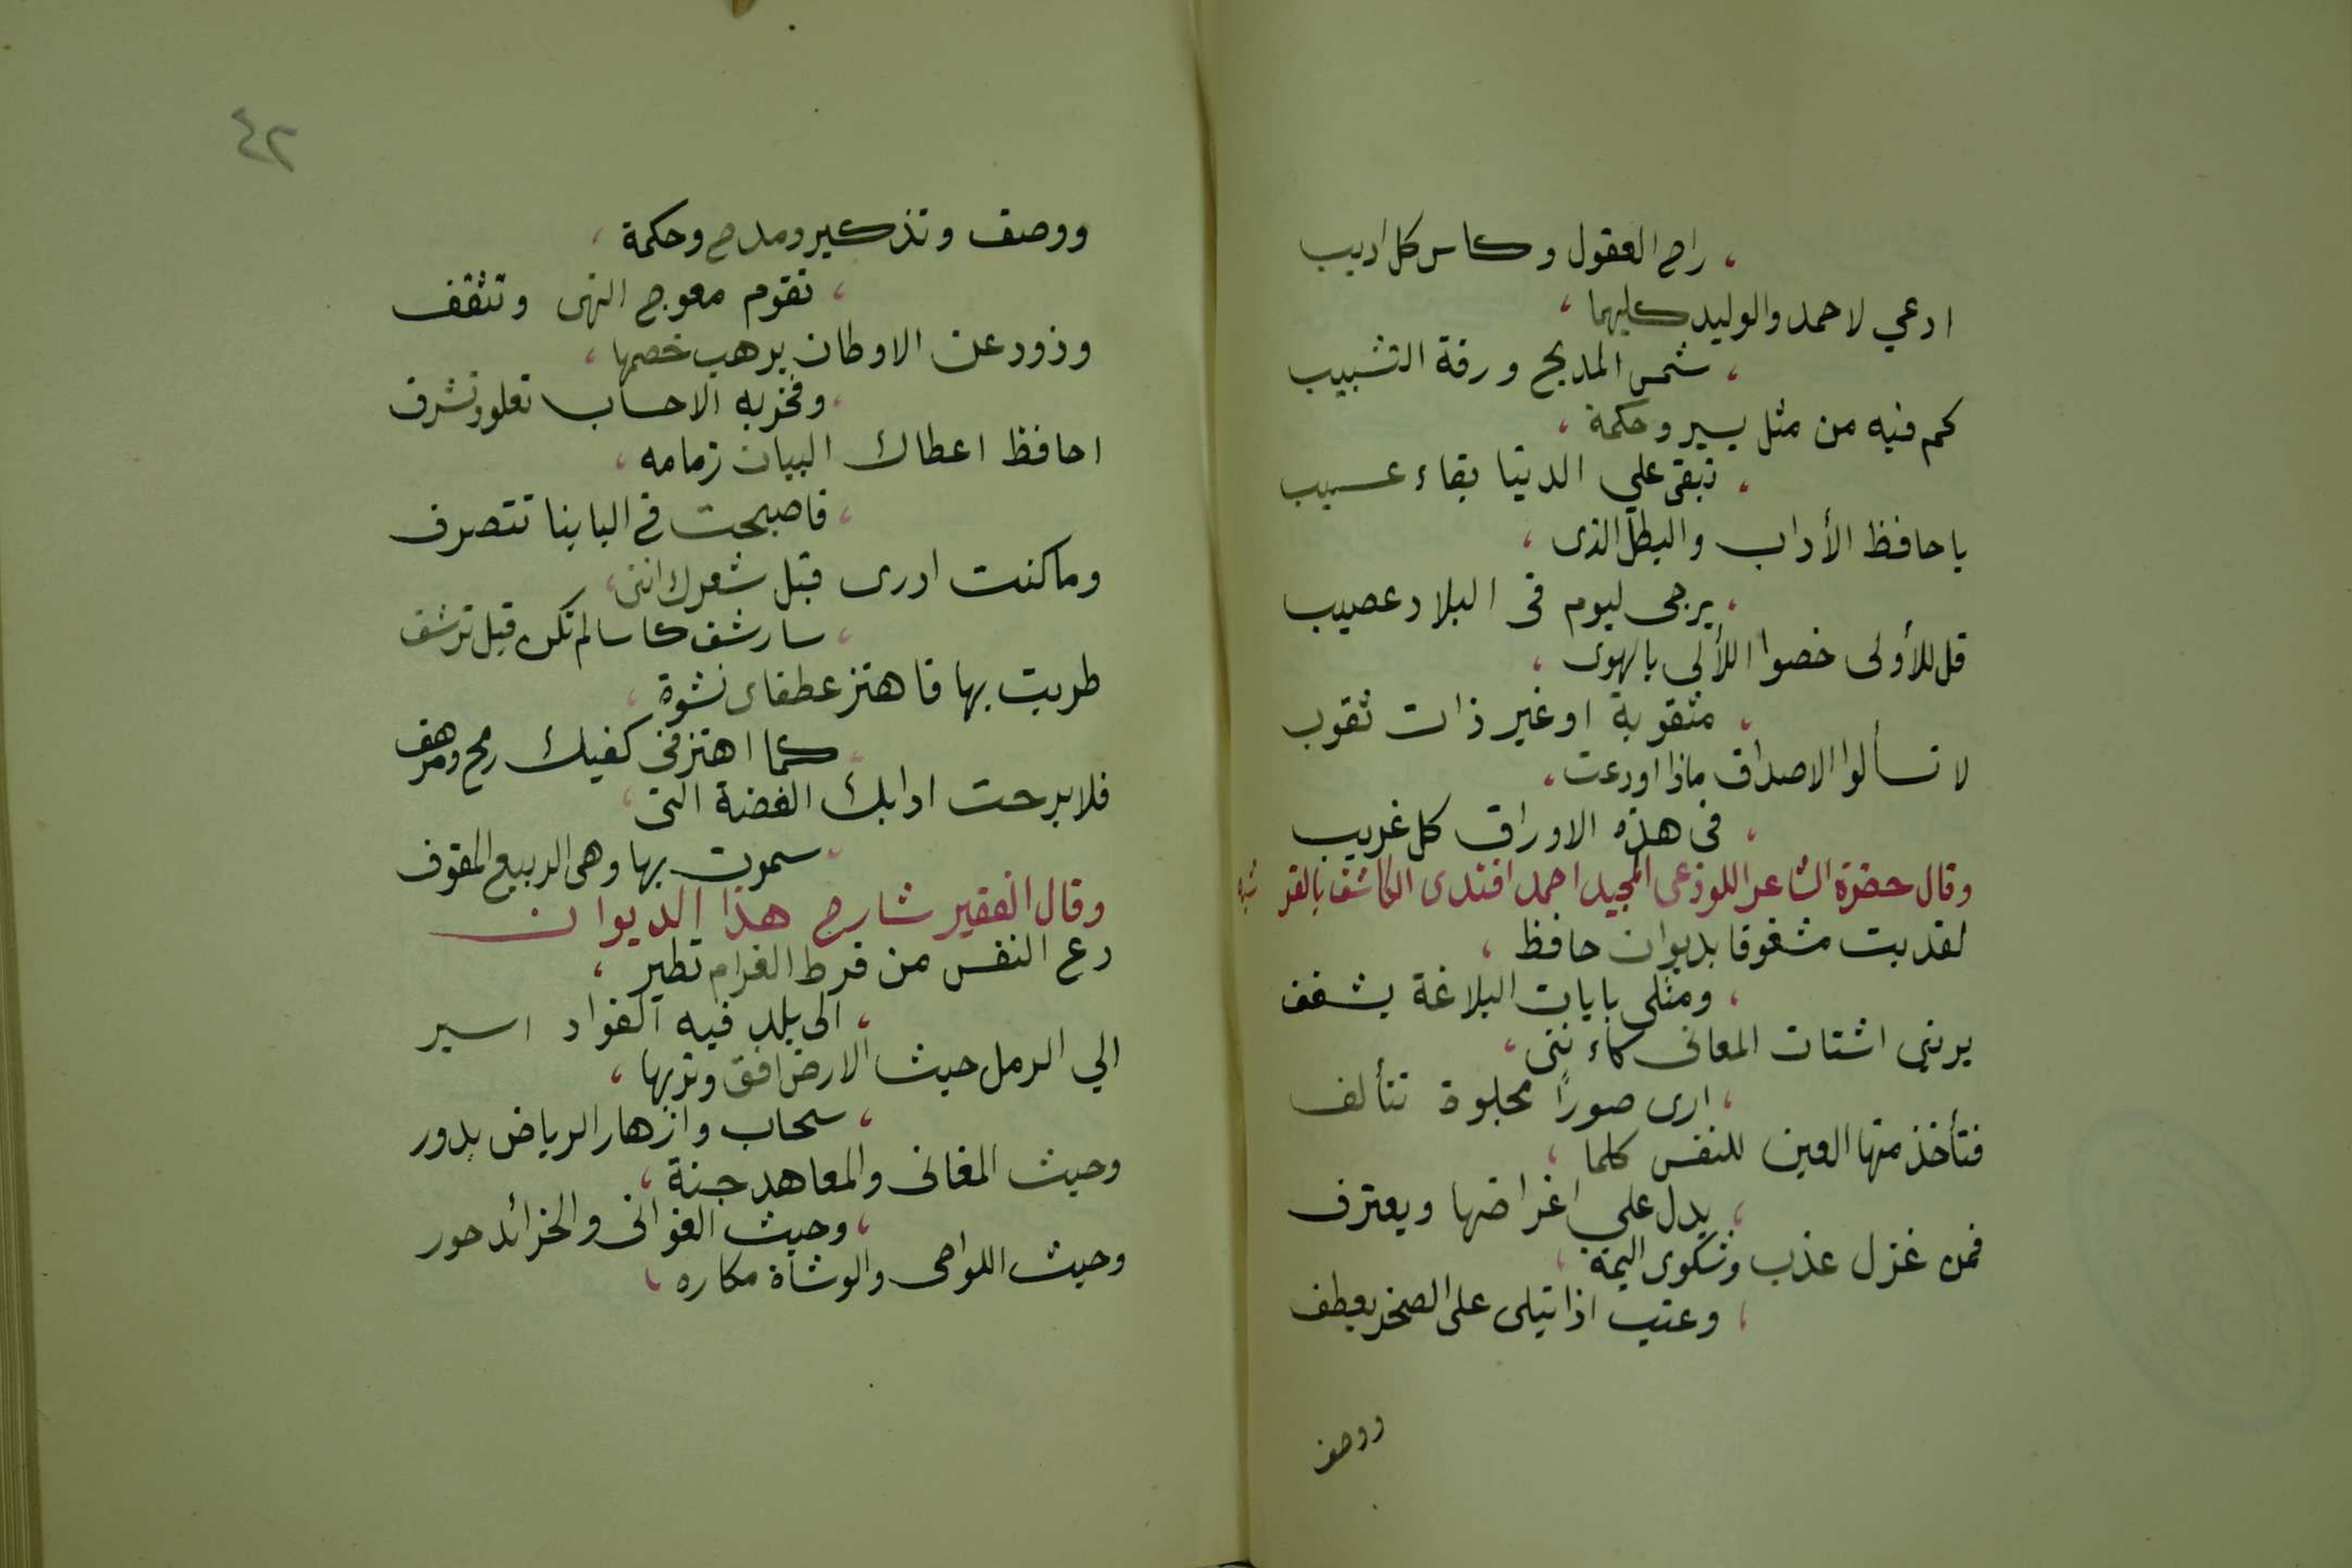 ، راح العقول وكاس كل اديب
ادعي لاحمد والوليد كليهما ،
، شمس المديح ورقة التشبيب
كم فيه من مثل يسير وحكمة ،
، تبقى علي الدنيا بقاء عسيب
يا حافظ الأداب والبطل الذى ،
، يرجى ليوم فى البلاد عصيب
قل للأولى خصوا اللألى بالهوى ،
، مثقوبة او غير ذات ثقوب
لا تسألوا الاصداف ماذا اودعت ،
، فى هذه الاوراق كل غريب
وقال حضرة الشاعر اللوذعى المجيد احمد افندى الكاشف بالقر شيه
لقد بت مشغوفا بديوان حافظ ،
، ومثلى بايات البلاغة يشغف
يرينى اشتات المعانى كاءننى ،
، ارى صورًا مجلوة تتألف
فتأخذ منها العين للنفس كلما ،
، يدل علي اغراضها ويعترف
فمن غزل عذب وشكوى اليمة ،
، وعتب اذا يتلى على الصخر يعطف
ووصف
٤٢
ووصف وتذكير ومدح وحكمة ،
، تقوم معوج النهى وتثقف
وذود عن الاوطان يرهب خصمها ،
، وفخر به الاحساب تعلو وتشرف
احافظ اعطاك البيان زمامه ،
، فاصبحت فى البابنا تتصرف
وما كنت ادرى قبل شعرك اننى ،
، سارشف كاسا لم تكن قبل ترشف
طربت بها فاهتز عطفاى نشوة ،
، كما اهتز فى كفيك رمح ومرهف
فلا برحت ادابك الغضة التى ،
، سموت بها وهى الربيع المفوف
وقال الفقير شارح هذا الديوان
دع النفس من فرط الغرام تطير ،
، الى بلد فيه الفواد اسير
الي الرمل حيث الارض افق وتربها ،
، سحاب وازهار الرياض بدور
وحيث المغانى والمعاهد جنة ،
، وحيث الغوانى والخرائد حور
وحيث اللواحى والوشاة مكاره ،